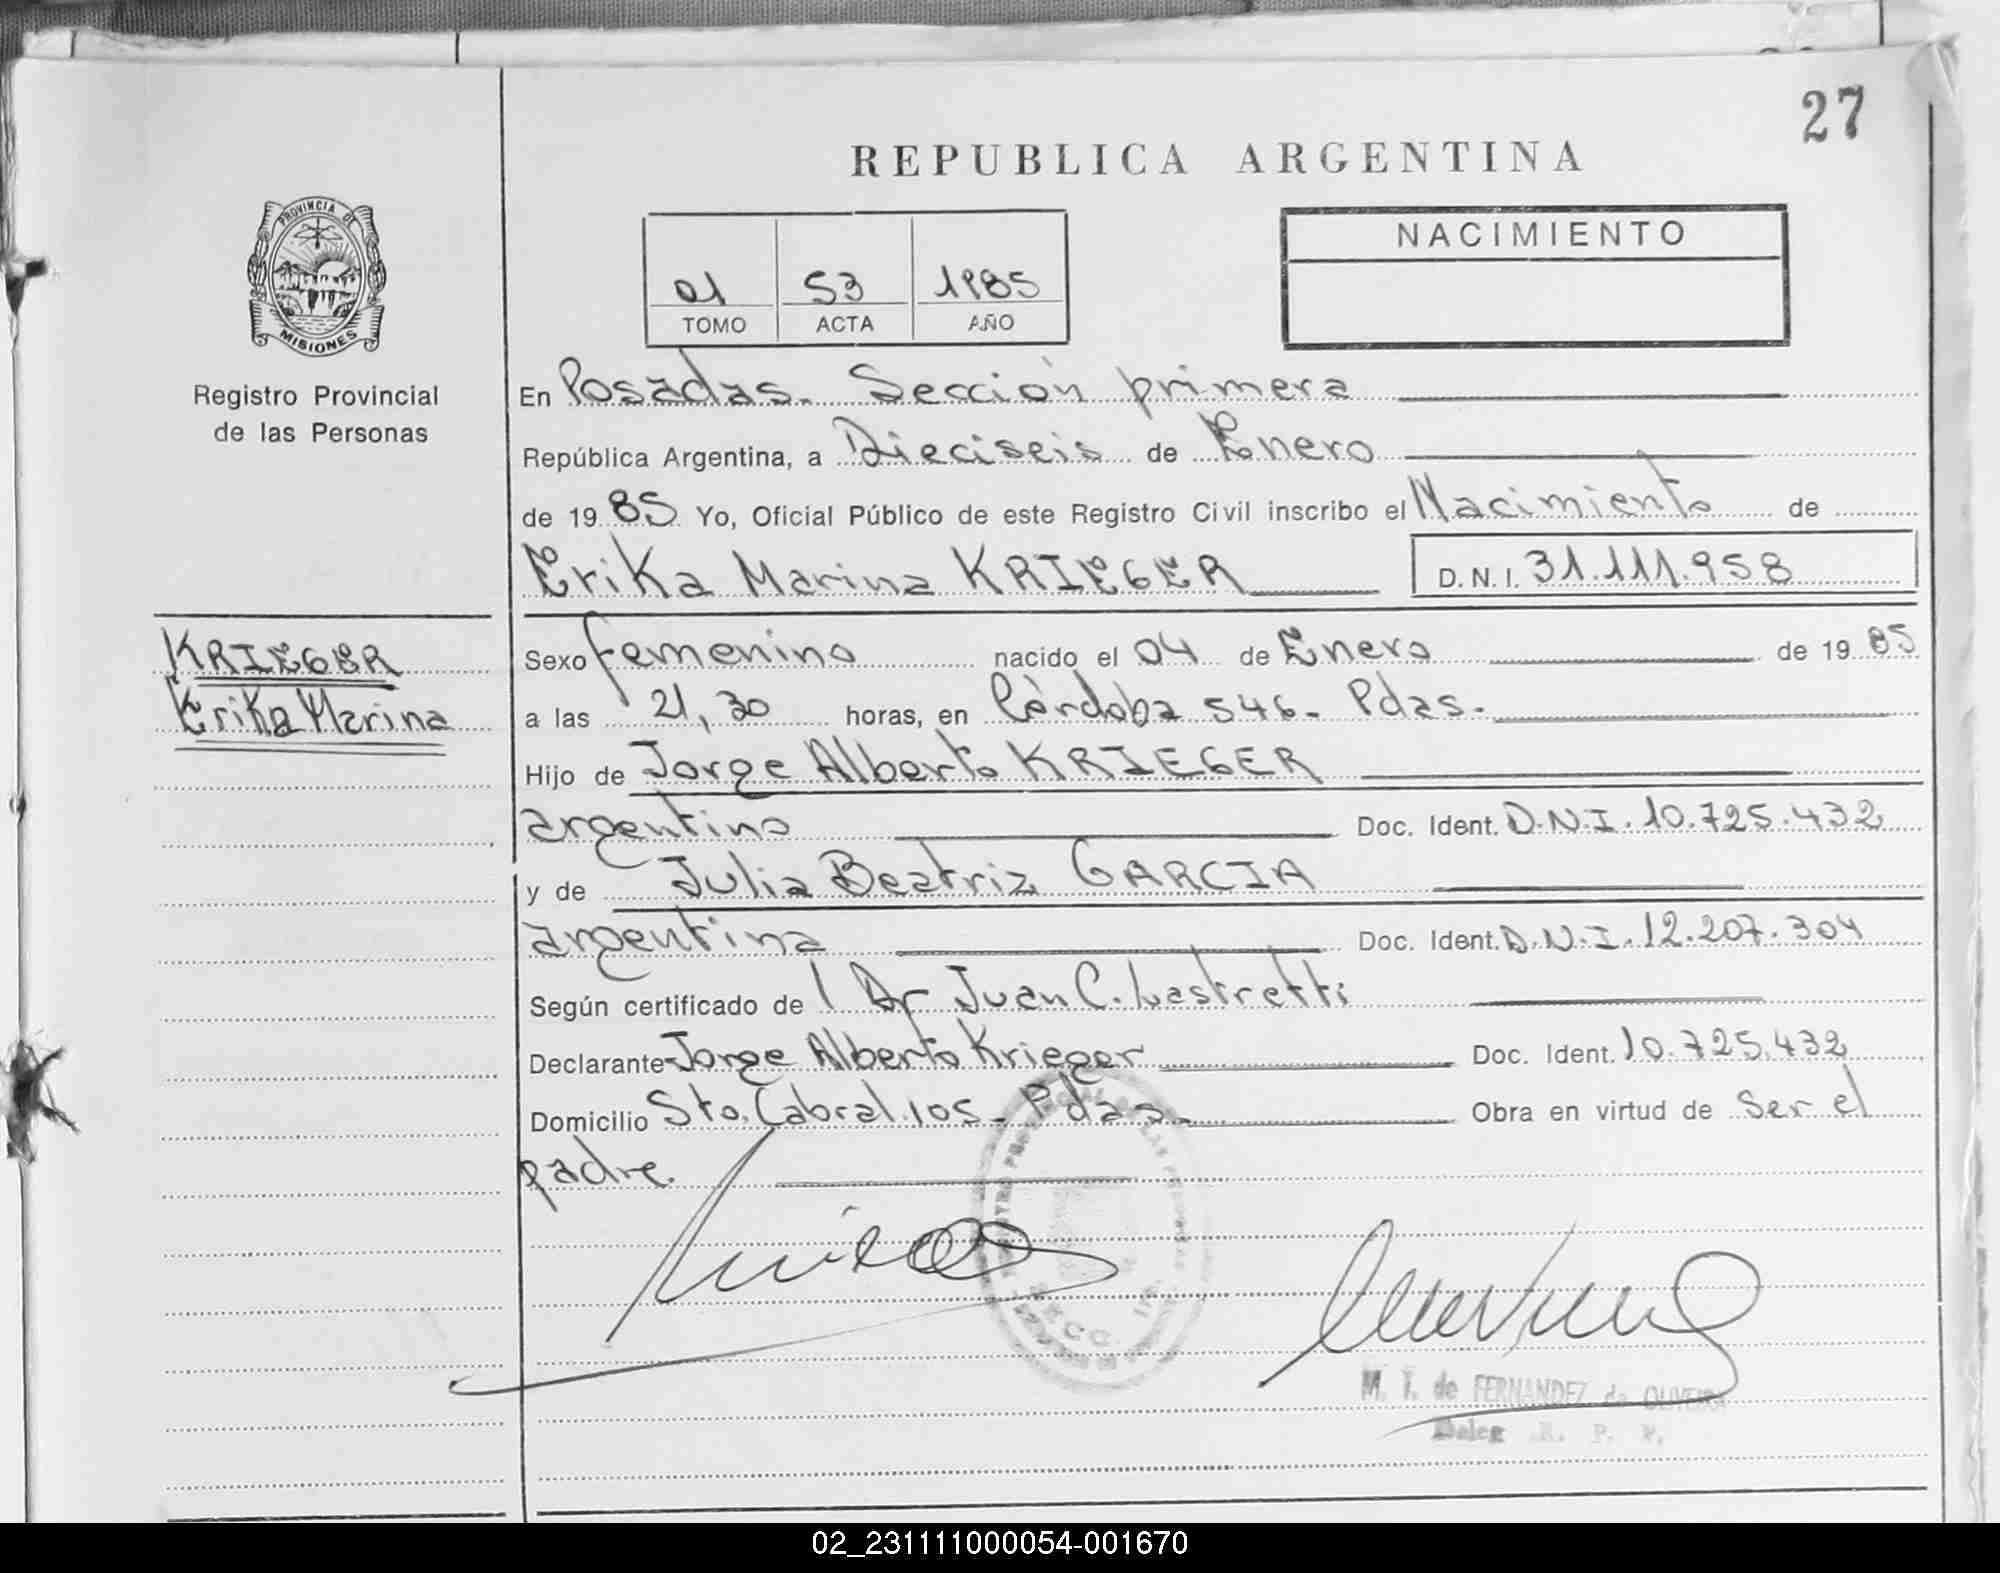 27
REPUBLICA ARGENTINA
PROVINCIA DE
MISIONES
Registro Provincial
de las Personas
01 53 1985
TOMO ACTA AÑO
NACIMIENTO
En Posadas. Sección primera
República Argentina, a Dieciseis de Enero
de 1985 Yo, Oficial Público de este Registro Civil inscribo el Nacimiento de
Erika Marina KRIEGER D.N.I. 31.111.958
KRIEGER
Erika Marina
Sexo femenino nacido el 04 de Enero de 1985
a las 21,30 horas, en Córdoba 546- Pdas.
Hijo de Jorge Alberto KRIEGER
argentino Doc. Ident. D.N.I. 10.725.432
y de Julia Beatriz GARCIA
argentina Doc. Ident. D.N.I. 12.207.304
Según certificado de l Dr Juan C. Lastretti
Declarante Jorge Alberto Krieger Doc. Ident. 10.725.432
Domicilio Sto. Cabral 105- Pdas. Obra en virtud de Ser el
padre.
M. T. de FERNANDEZ de OLIVEIRA
Deleg. R. P. P.
02_231111000054-001670